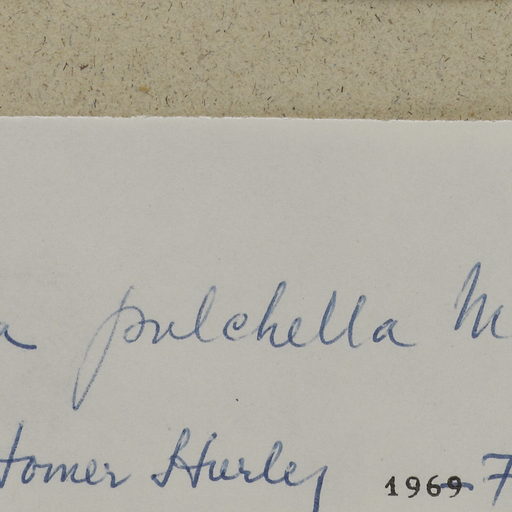 a pulchella M
Homer Hurley 1969 7